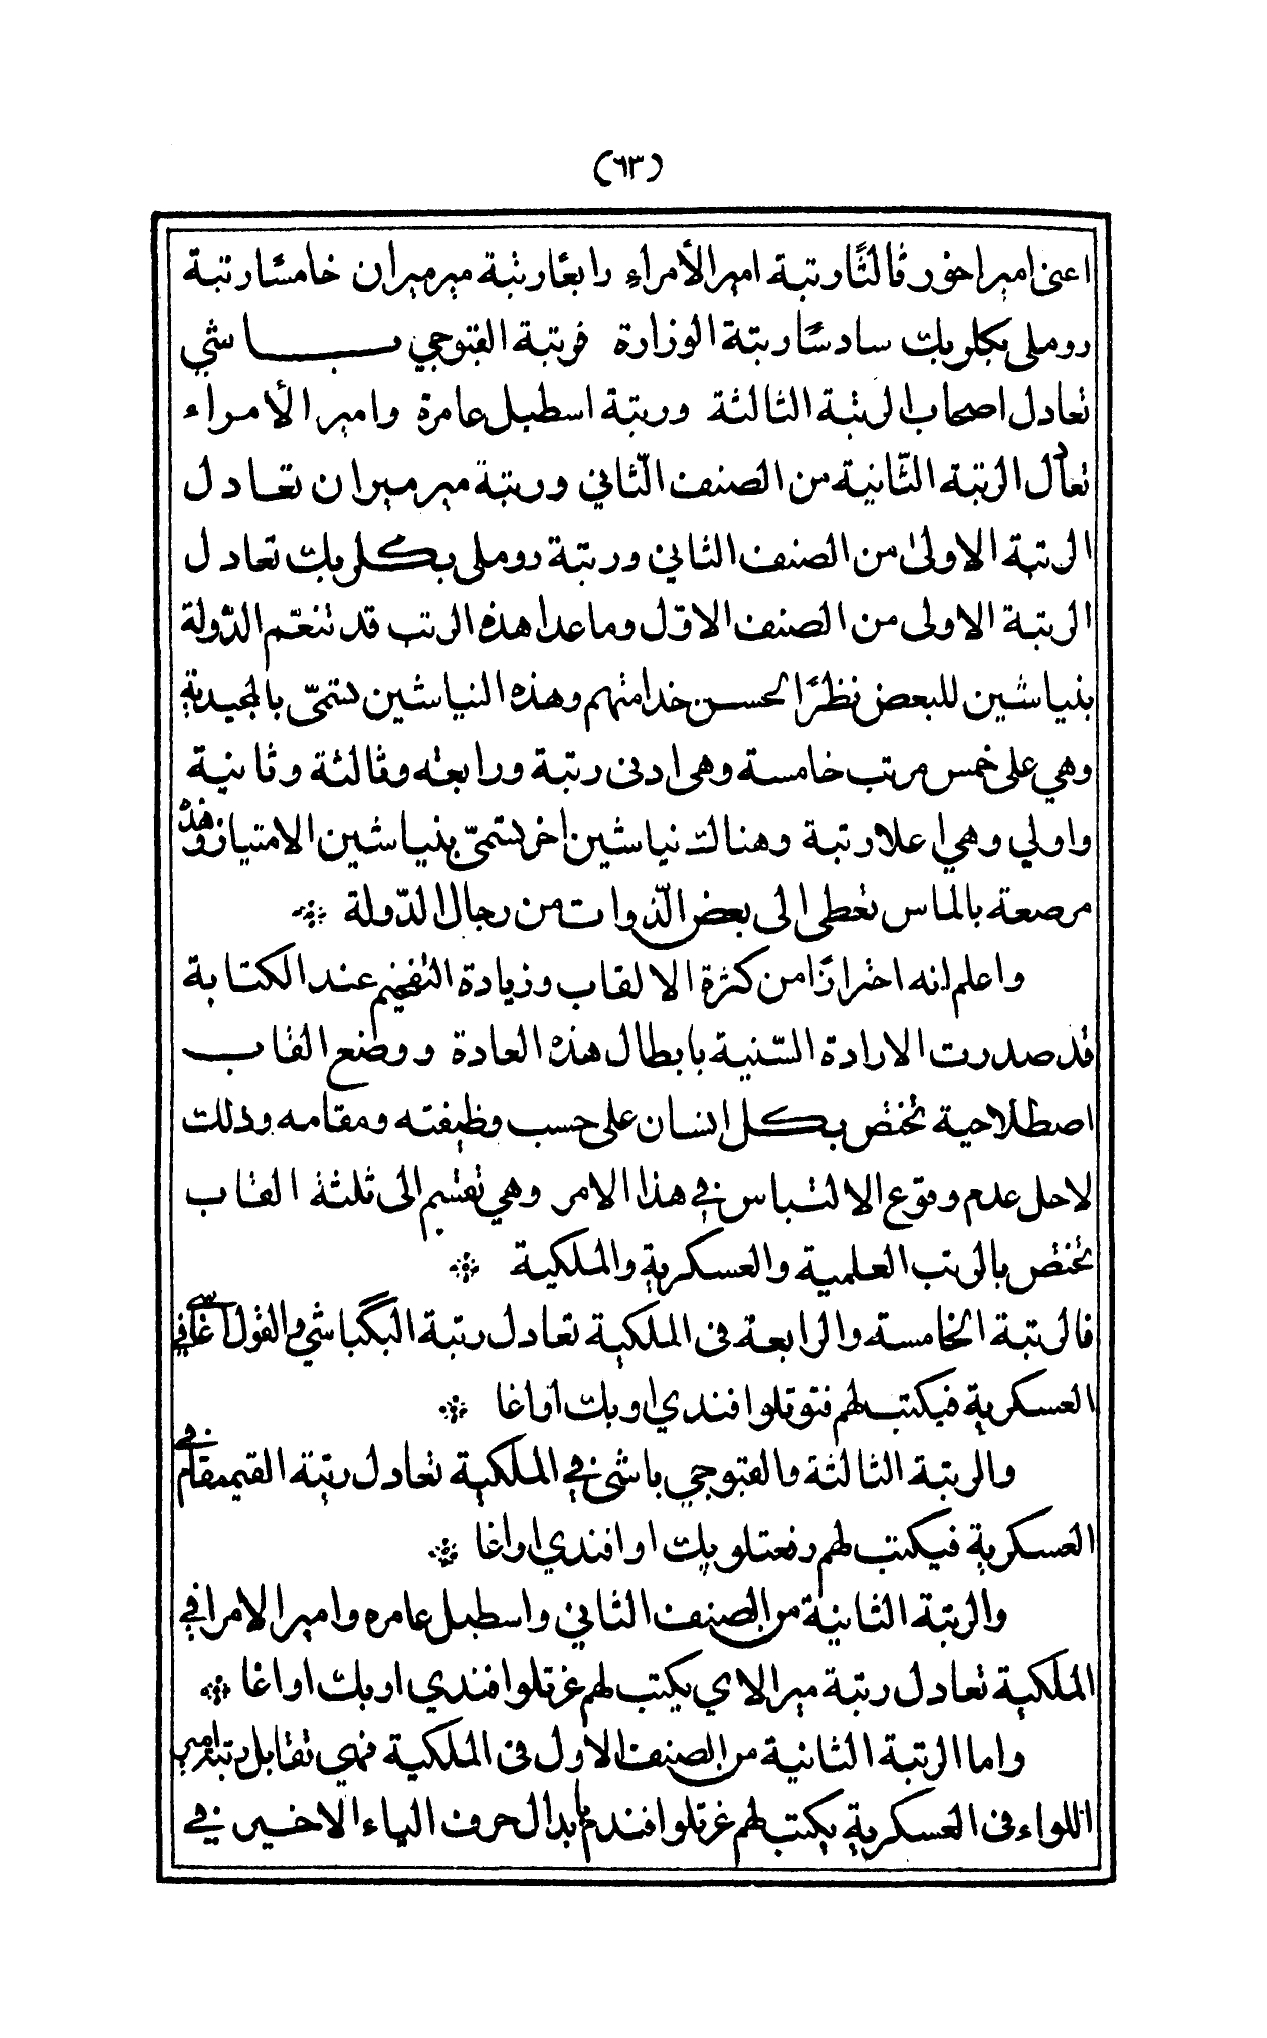 (٦٣)
اعنى اميراخور ثالثًا رتبة امير الأمراء رابعًا رتبة ميرميران خامسًا رتبة
روملى بكلربك سادسًا رتبة الوزارة فرتبة القبوجي باشي
تعادل اصحاب الرتبة الثالثة ورتبة اسطبل عامرة وامير الأمراء
تعادل الرتبة الثّانية من الصنف الثّاني ورتبة ميرميران تعادل
الرتبة الاولى من الصنف الثاني ورتبة روملى بكلربك تعادل
الرتبة الاولى من الصنف الاوّل وماعدا هذه الرتب قد تنعّم الدّولة
بنياشين للبعض نظرًا لحسن خدامتهم وهذه النياشين تسمّى بالمجيدية
وهي على خمس مرتب خامسة وهى ادنى رتبة ورابعه وثالثة وثانية
واولي وهي اعلا رتبة وهنالك نياشين اخر تسمّى بنياشين الامتياز وهذه
مرصعة بالماس تعطى الى بعض الذّوات من رجال الدّولة ❊
واعلم انه احترازًا من كثرة الالقاب وزيادة التفخيم عند الكتابة
قد صدرت الارادة السّنية بابطال هذه العادة ووضع القاب
اصطلاحية تختص بكل انسان على حسب وظيفته ومقامه وذلك
لاجل عدم وقوع الالتباس في هذا الامر وهي تقسم الى ثلثة القاب
تختص بالرتب العلمية والعسكرية والملكية ❊
فالرتبة الخامسة والرابعة فى الملكية تعادل رتبة البكباشي والقول اغاسي في
العسكرية فيكتب لهم فتوتلو افندي او بك او اغا ❊
والرتبة الثالثة والقبوجي باشى في الملكية تعادل رتبة القيمقام في
العسكرية فيكتب لهم رفعتلو بك او افندي او اغا ❊
والرتبة الثانية من الصنف الثاني واسطبل عامره وامير الامرا في
الملكية تعادل رتبة ميرالاي يكتب لهم عزتلو افندي او بك او اغا ❊
واما الرتبة الثانية من الصنف الاول فى الملكية فهي تقابل رتبة امير
اللواء فى العسكرية يكتب لهم عزتلو افندم بابدال حرف الياء الاخير في